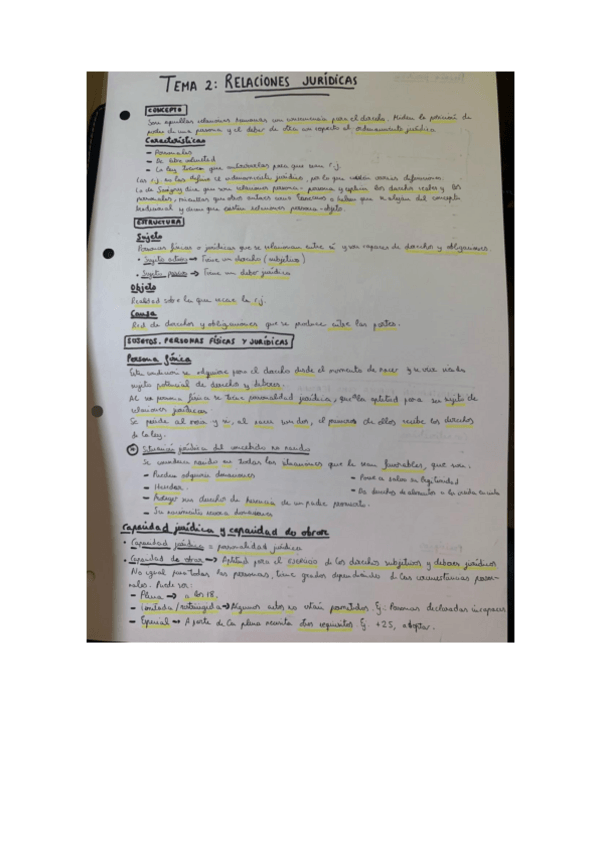 TEMA 2: RELACIONES JURÍDICAS
CONCEPTO
Son aquellas relaciones humanas con para el derecho. la posición de
poder de una persona y el deber de otra con respecto al ordenamiento jurídico
Características
- Personales
- De
- La ley tiene que para que sean r.j.
Las r.j. en las define el ordenamiento jurídico, por lo que existen varias definiciones.
La de Savigny dice que son relaciones persona-persona y explica los derechos reales y los
personales, mientras que otros autores como o se alejan del concepto
tradicional y dicen que existen relaciones persona-objeto.
ESTRUCTURA
Sujeto
Personas físicas o jurídicas que se relacionan entre sí y son capaces de derechos y obligaciones.
• Sujeto activo → Tiene un derecho (subjetivo)
• Sujeto pasivo → Tiene un deber jurídico
Objeto
Realidad sobre la que recae la r.j.
Causa
Red de derechos y obligaciones que se produce entre las partes.
SUJETOS. PERSONAS FÍSICAS Y JURÍDICAS
Persona física
Esta condición se adquiere para el derecho desde el momento de nacer y
sujeto potencial de derecho y deberes.
Al ser persona física se tiene personalidad jurídica, que es la aptitud para ser sujeto de
relaciones jurídicas
Se pierde al morir y si, al morir dos, el primero de ellos recibe los derechos
de la ley.
Situación jurídica del concebido no nacido
Se considera nacido en todas las situaciones que le sean favorables, que son:
- Pueden adquirir donaciones
- Heredar.
- sus derechos de herencia de un padre
- Su nacimiento revoca donaciones
- su legitimidad
- De derechos de alimentos a la
Capacidad jurídica y capacidad de obrar
• Capacidad jurídica = personalidad jurídica
• Capacidad de obrar → Aptitud para el ejercicio de los derechos subjetivos y deberes jurídicos
No igual para todas las personas, tiene grados dependiendo de las circunstancias perso-
nales. Puede ser:
- Plena → a los 18.
- Limitada/restringida → Algunos actos no están permitidos. Ej: Personas declaradas incapaces
- Especial → Aparte de la plena necesita otros requisitos. Ej. +25, adoptar.